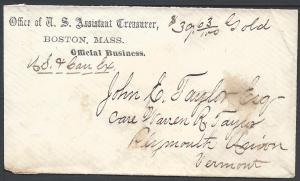 Office of U. S. Assistant Treasurer,
BOSTON, MASS.
Official Business.
$39 03/100 Gold
U.S. & Can Ex
John C. Taylor Esq
Care Warren R Taylor
Plymouth Union
Vermont